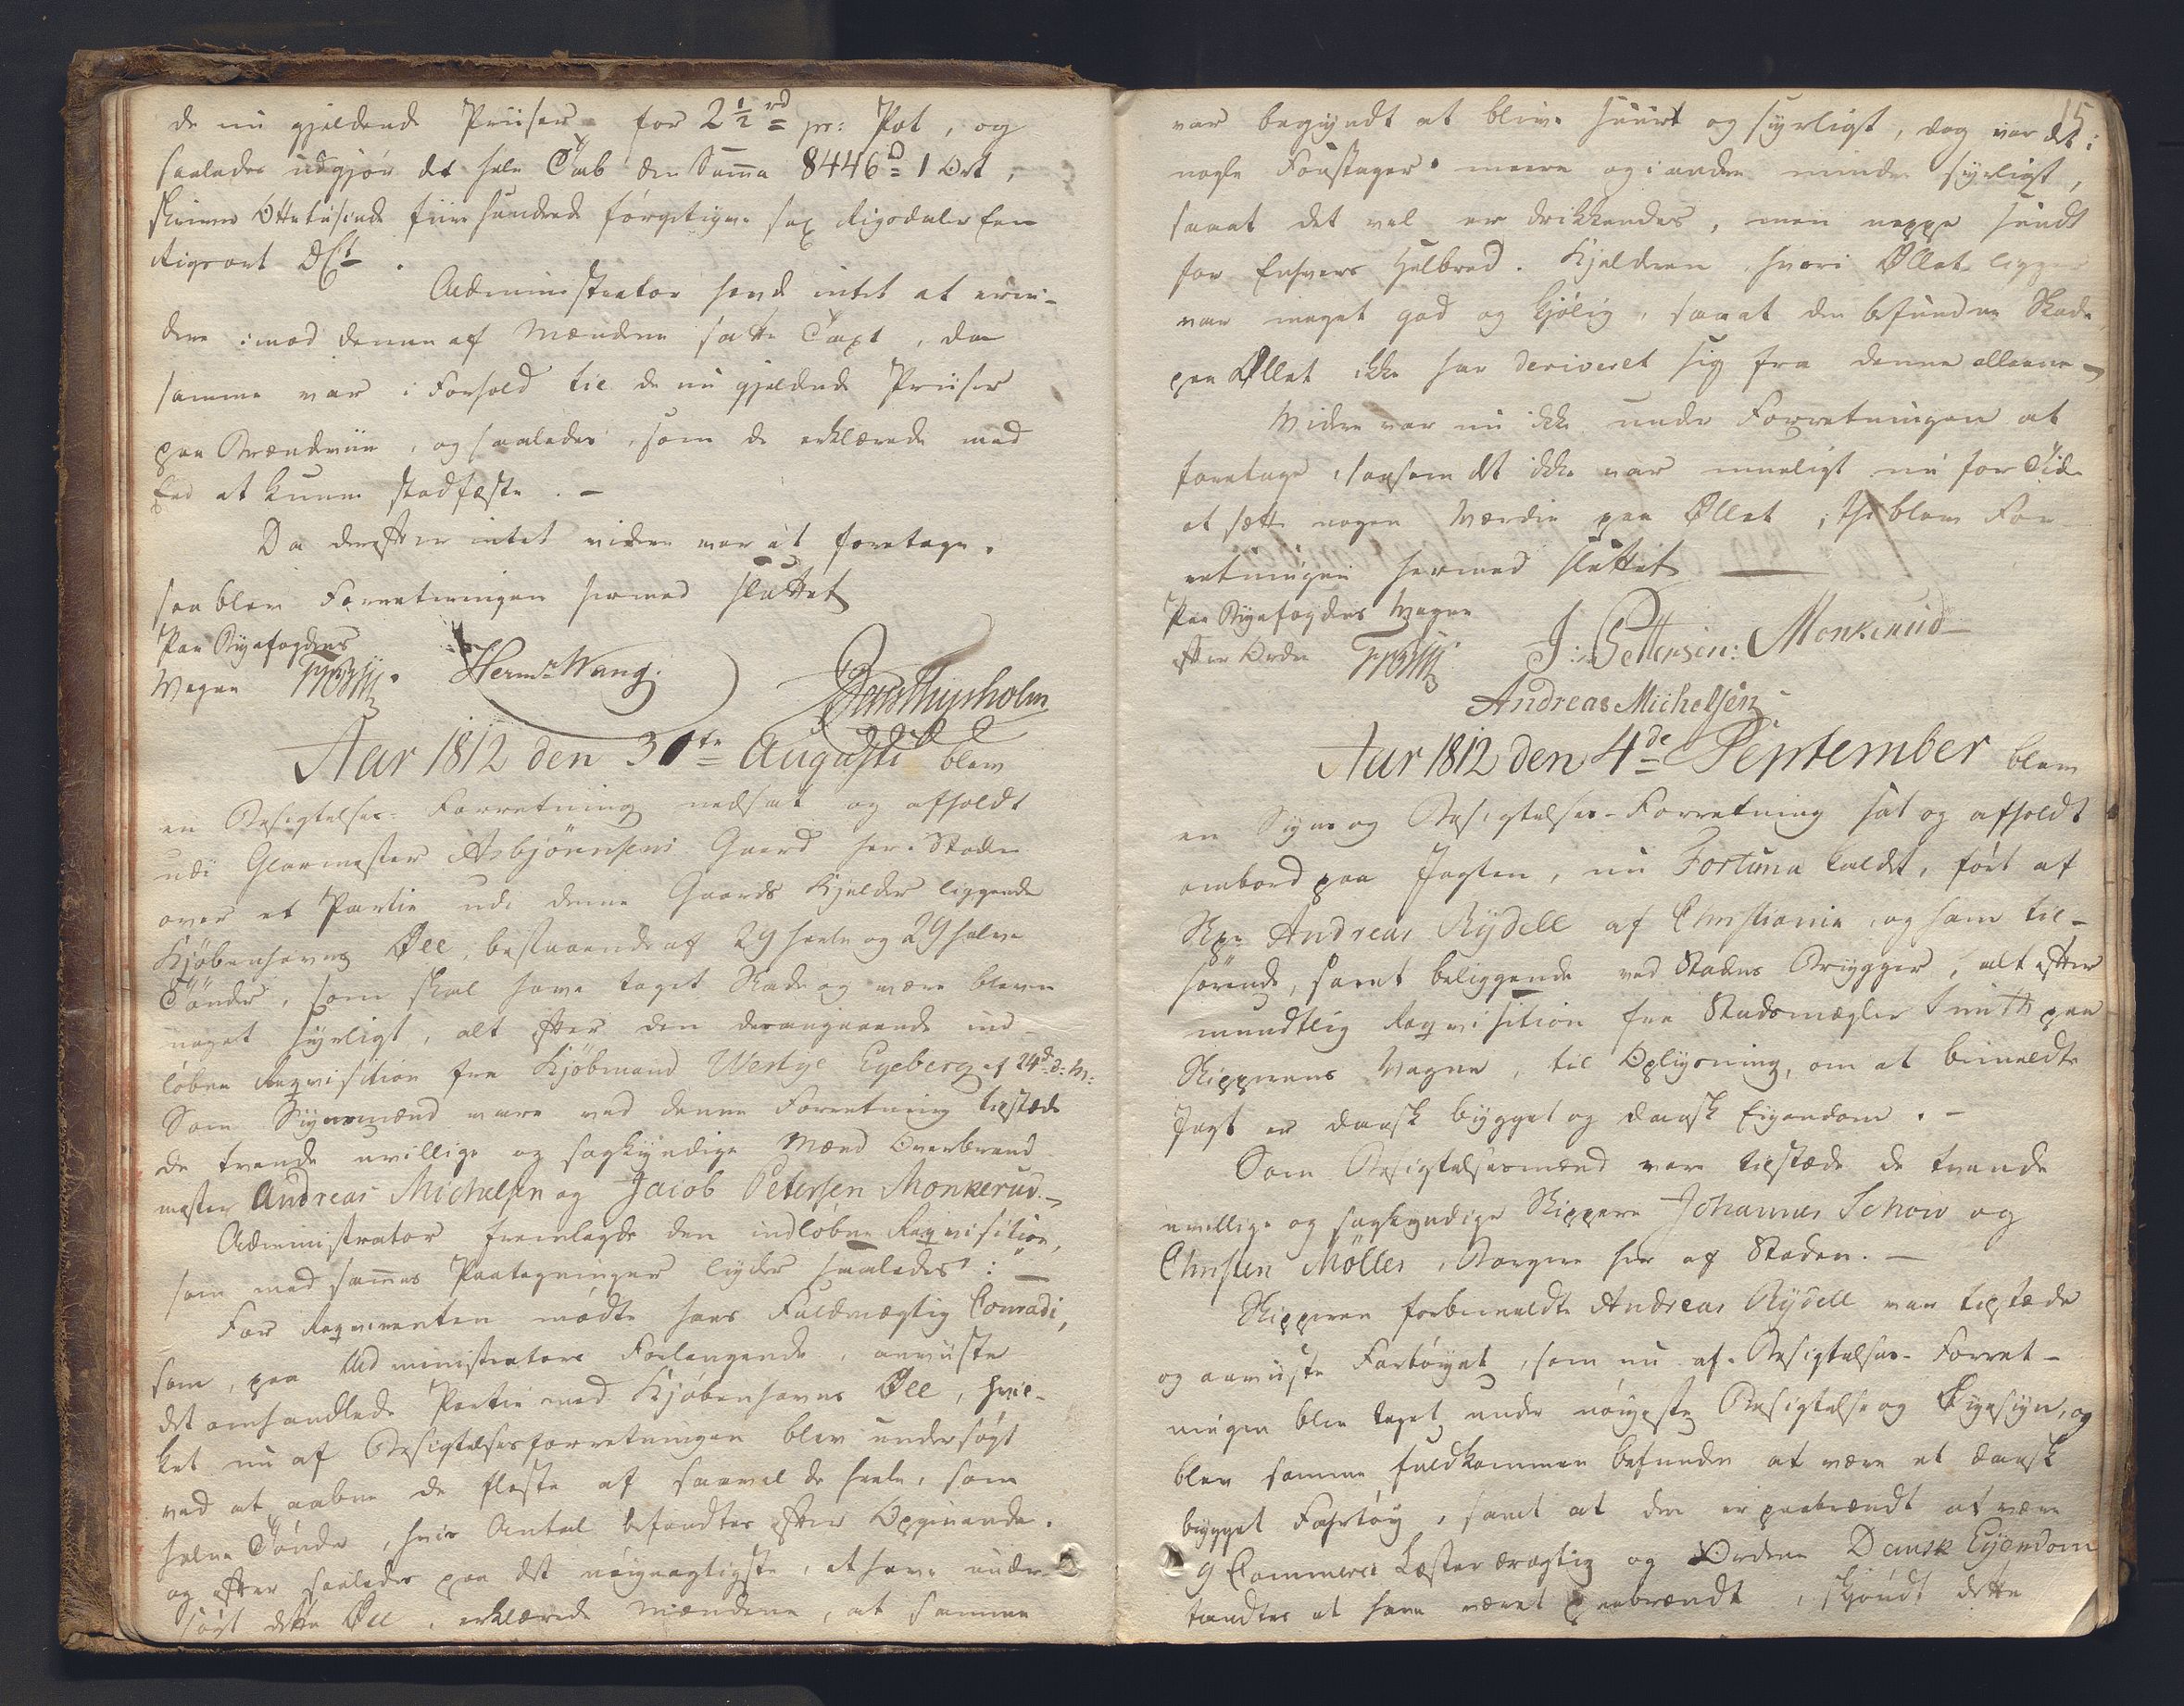 de nu gjeldende Priiser for 2 1/2 rd pr: Pot, og
saaledes udgjør det hele Tab den Suma 8446 D 1 Ort,
skriver Ottetusinde fiire hundrede førgetyve sex Rigsdaler Een
Rigsort DCt.
Administrator havde intet at erin-
dre imod denne af Mændene satte Taxt, da
samme var i Forhold til de nu gjeldende Priiser
paa Brændeviin, og saaledes, som de erklærede med
Eed at kunne stadfæste. –
Da derefter intet videre var at foretage,
saa blev Forretningen hermed sluttet
Paa Byefogdens
Vegne
Herm: Wang.
Jens Thysholm
Aar 1812 den 31te Augusti blev
en Besigtelses-Forretning nedsat og afholdt
udi Glarmester Asbjörnsens Gaard her i Staden
over et Partie udi denne Gaards Kjelder liggende
Kjøbenhavns Øll, bestaaende af 29 heele og 29 halve
Tønder, som skal have taget Skade og være bleven
noget syrligt, alt efter den derangaaende ind-
løbne Reqvisition fra Kjöbmand Westye Egeberg af 24d: d: M:
Som Synsmænd vare ved denne Forretning tilstæde
de tvende uvillige og sagkyndige Mænd Overbrand-
mester Andreas Michelsen og Jacob Petersen Monkerud. –
Administrator fremlagde den indløbne Reqvisition,
som med sammes Paategninger lyder saaledes: –
For Reqvirenten mødte hans Fuldmægtig Conradi,
som, paa Administrators Forlangende, anviiste
det omhandlede Partie med Kjöbenhavns Øll, hvil-
ket nu af Besigtelsesforretningen blev undersøgt
ved at aabne de fleste af saavel de heele, som
halve Tønder, hvis Antal befandtes efter Opgivende.
og efter saaledes paa det nøiagtigste, at have under-
søgt dette Øll, erklærede Mændene, at samme
15
var begyndt at blive suurt og syrligt, dog var det i
nogle Foustager meere og i andre mindre syrligt,
saaat det vel er drikkendes, men neppe sundt
for Enhvers Helbred. Kjelderen, hvori Øllet ligger
var meget god og kjølig, saaat den befundne Skade
paa Øllet ikke har deriveret sig fra denne alleene –
Videre var nu ikke under Forretningen at
foretage, saasom det ikke var mueligt nu for Tide
at sætte nogen Værdie paa Øllet; thi blev For
retningen hermed sluttet –
Paa Byefogdens Vegne
efter Ordre
J: Pettersen: Monkerud
Andreas Michelsen
Aar 1812 den 4de September blev
en Syns og Besigtelses-Forretning sat og afholdt
ombord paa Jagten, nu Fortuna kaldet, ført af
Skp: Andreas Rydell af Christiania, og ham til-
hørende, samt beliggende ved Stadens Brygger, alt efter
mundtlig Reqvisition fra Stadsmægler Smith paa
Skipperens Vegne, til Oplysning, om at bemeldte
Jagt er dansk bygget og dansk Eigendom. –
Som Besigtelsesmænd vare tilstæde de tvende
uvillige og sagkyndige Skippere Johannes Schow og
Christen Möller, Borgere her af Staden. –
Skipperen forbemeldte Andreas Rydell var tilstæde
og anviiste Fartøyet, som nu af Besigtelses-Forret-
ningen blev taget under nøyeste Besigtelse og Eyesyn, og
blev samme fuldkommen befunden at være et dansk
bygget Fartøy, samt at der er paabrændt at være
9 Commerce Læster drægtig og Ordene Dansk Eyendom
fandtes at have været paabrændt, skjøndt dette